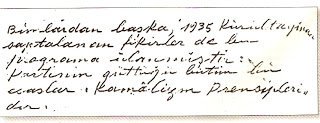 Bunlardan başka, 1935 Kurultayında
saptalanan fikirler de bu
programa alınmıştır.
Partinin güttüğü bütün bu
esaslar, Kamâlizm Prensipleri-
dir.